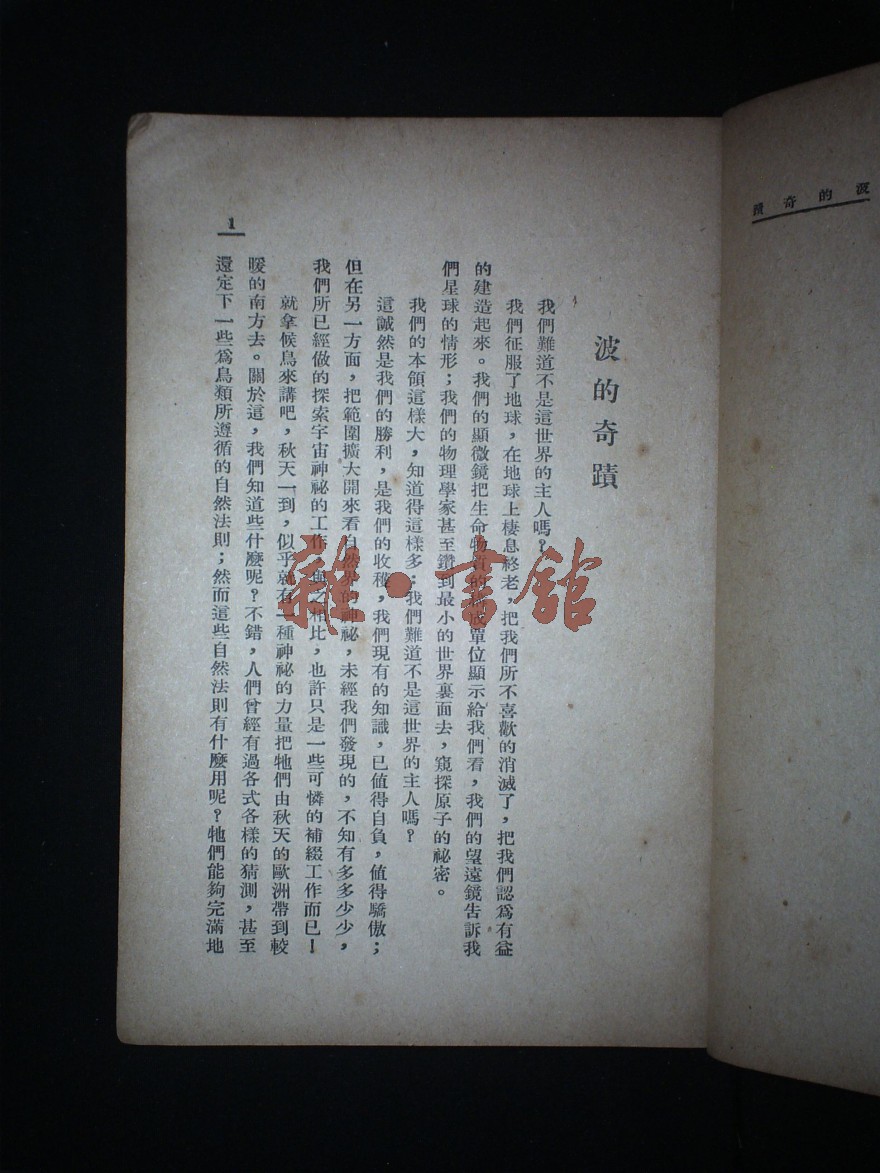 波的奇蹟
我們難道不是這世界的主人嗎？
我們征服了地球，在地球上棲息終老，把我們所不喜歡的消滅了，把我們認爲有益
的建造起來。我們的顯微鏡把生命物質的 成單位顯示給我們看，我們的望遠鏡告訴我
們星球的情形；我們的物理學家甚至鑽到最小的世界裏面去，窺探原子的祕密。
我們的本領這樣大，知道得這樣多；我們難道不是這世界的主人嗎？
這誠然是我們的勝利，是我們的收穫，我們現有的知識，已值得自負，值得驕傲；
但在另一方面，把範圍擴大開來看自然界的神祕，未經我們發現的，不知有多多少少，
我們所已經做的探索宇宙神祕的工作，與之相比，也許只是一些可憐的補綴工作而已！
就拿候鳥來講吧，秋天一到，似乎就有一種神祕的力量把牠們由秋天的歐洲帶到較
暖的南方去。關於這，我們知道些什麼呢？不錯，人們曾經有過各式各樣的猜測，甚至
還定下一些爲鳥類所遵循的自然法則；然而這些自然法則有什麼用呢？牠們能夠完滿地
1
波的奇蹟
雜·書館